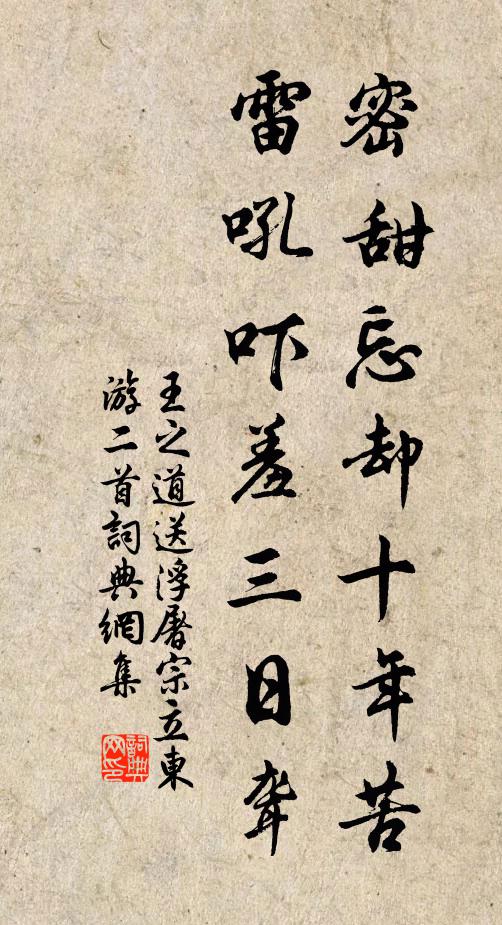 密甜忘却十年苦
雷吼吓羞三日聋
王之道送浮屠宗立東
游二首詞典網集
詞典
网印